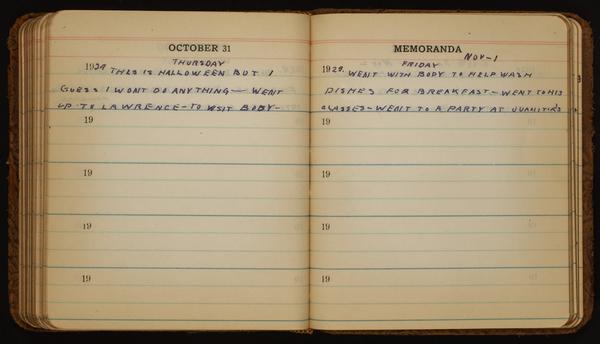 OCTOBER 31
THURSDAY
1929 THIS IS HALLOWEEN BUT I
GUESS I WONT DO ANYTHING — WENT
UP TO LAWRENCE - TO VISIT BODY -
19
19
19
19
MEMORANDA NOV-1
FRIDAY
1929. WENT WITH BODY TO HELP WASH
DISHES FOR BREAKFAST - WENT TO HIS
CLASSES - WENT TO A PARTY AT JUANITA'S
19
19
19
19